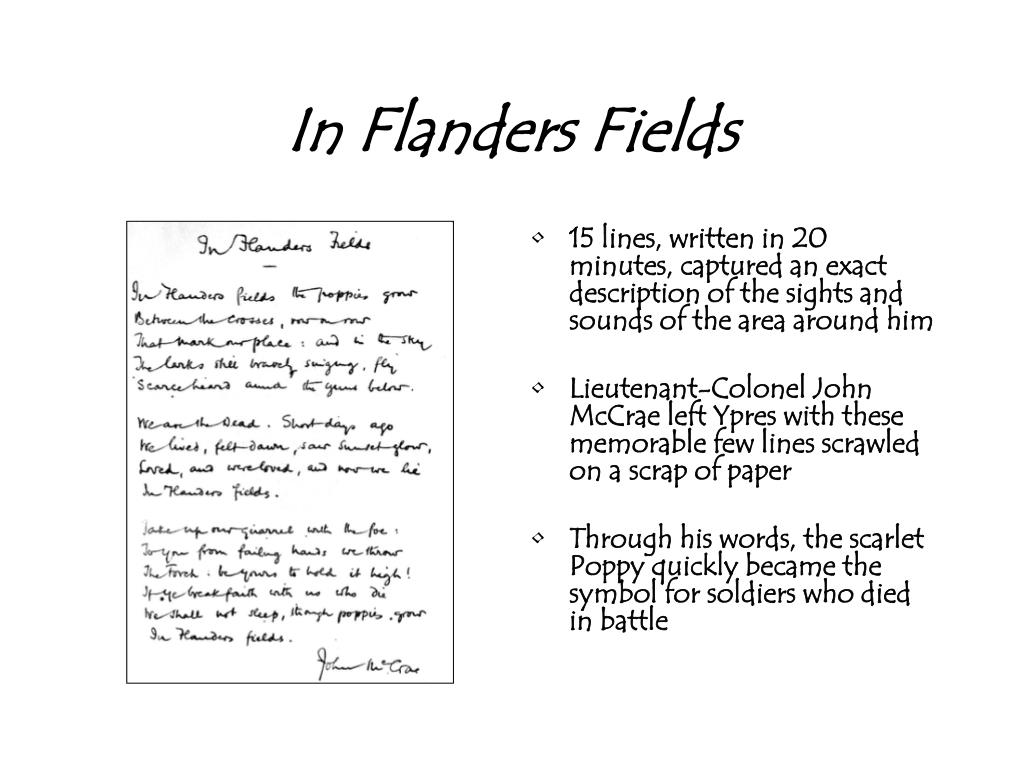 In Flanders Fields
In Flanders Fields
In Flanders fields the poppies grow
Between the crosses, row on row
That mark our place : and in the sky
The larks still bravely singing, fly
Scarce heard amid the guns below.
We are the Dead. Short days ago
We lived, felt dawn, saw sunset glow,
Loved, and were loved, and now we lie
In Flanders fields.
Take up our quarrel with the foe :
To you from failing hands we throw
The Torch . be yours to hold it high!
If ye break faith with us who die
We shall not sleep, though poppies grow
In Flanders fields.
John McCrae
• 15 lines, written in 20
minutes, captured an exact
description of the sights and
sounds of the area around him
• Lieutenant-Colonel John
McCrae left Ypres with these
memorable few lines scrawled
on a scrap of paper
• Through his words, the scarlet
Poppy quickly became the
symbol for soldiers who died
in battle